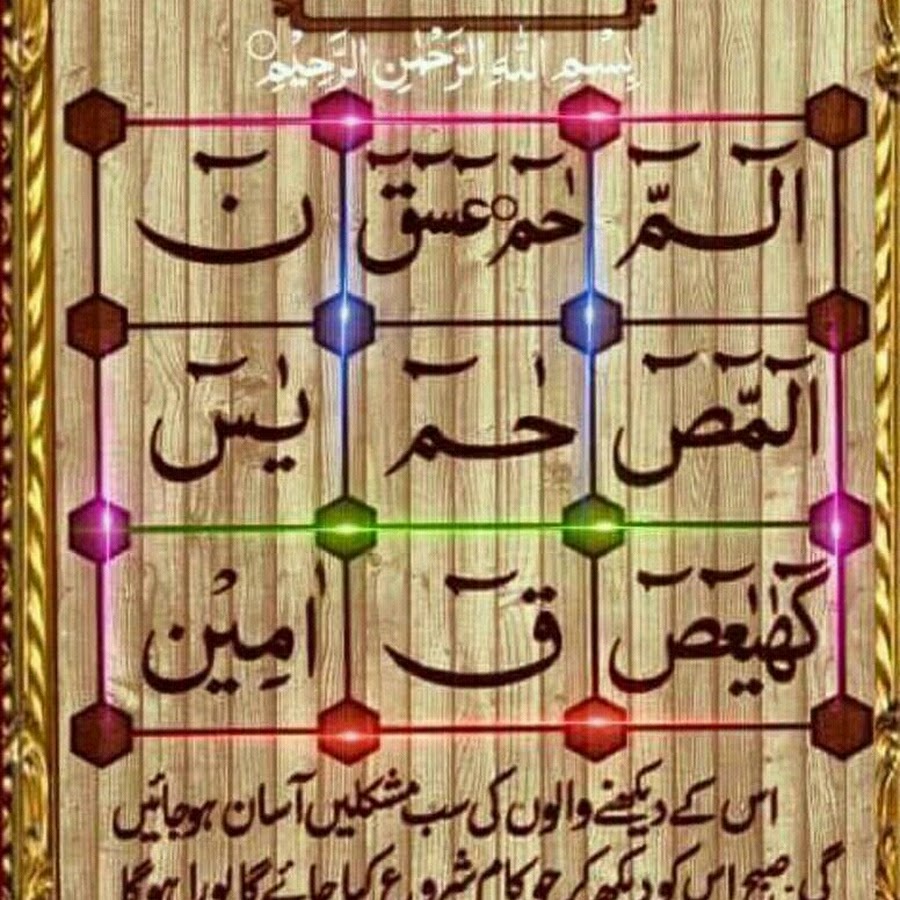 بِسْمِ اللّٰهِ الرَّحْمٰنِ الرَّحِيْمِ ○
الٓـمّٓ حٰمٓ ○ عٓسٓقٓ نٓ
الٓمّٓصٓ حٰمٓ يٰسٓ
كٓهٰيٰعٓصٓ قٓ اٰمِیْن
اس کے دیکھنے والوں کی سب مشکلیں آسان ہوجائیں
گی۔ صبح اس کو دیکھ کر جو کام شروع کیا جائے گا پورا ہوگا